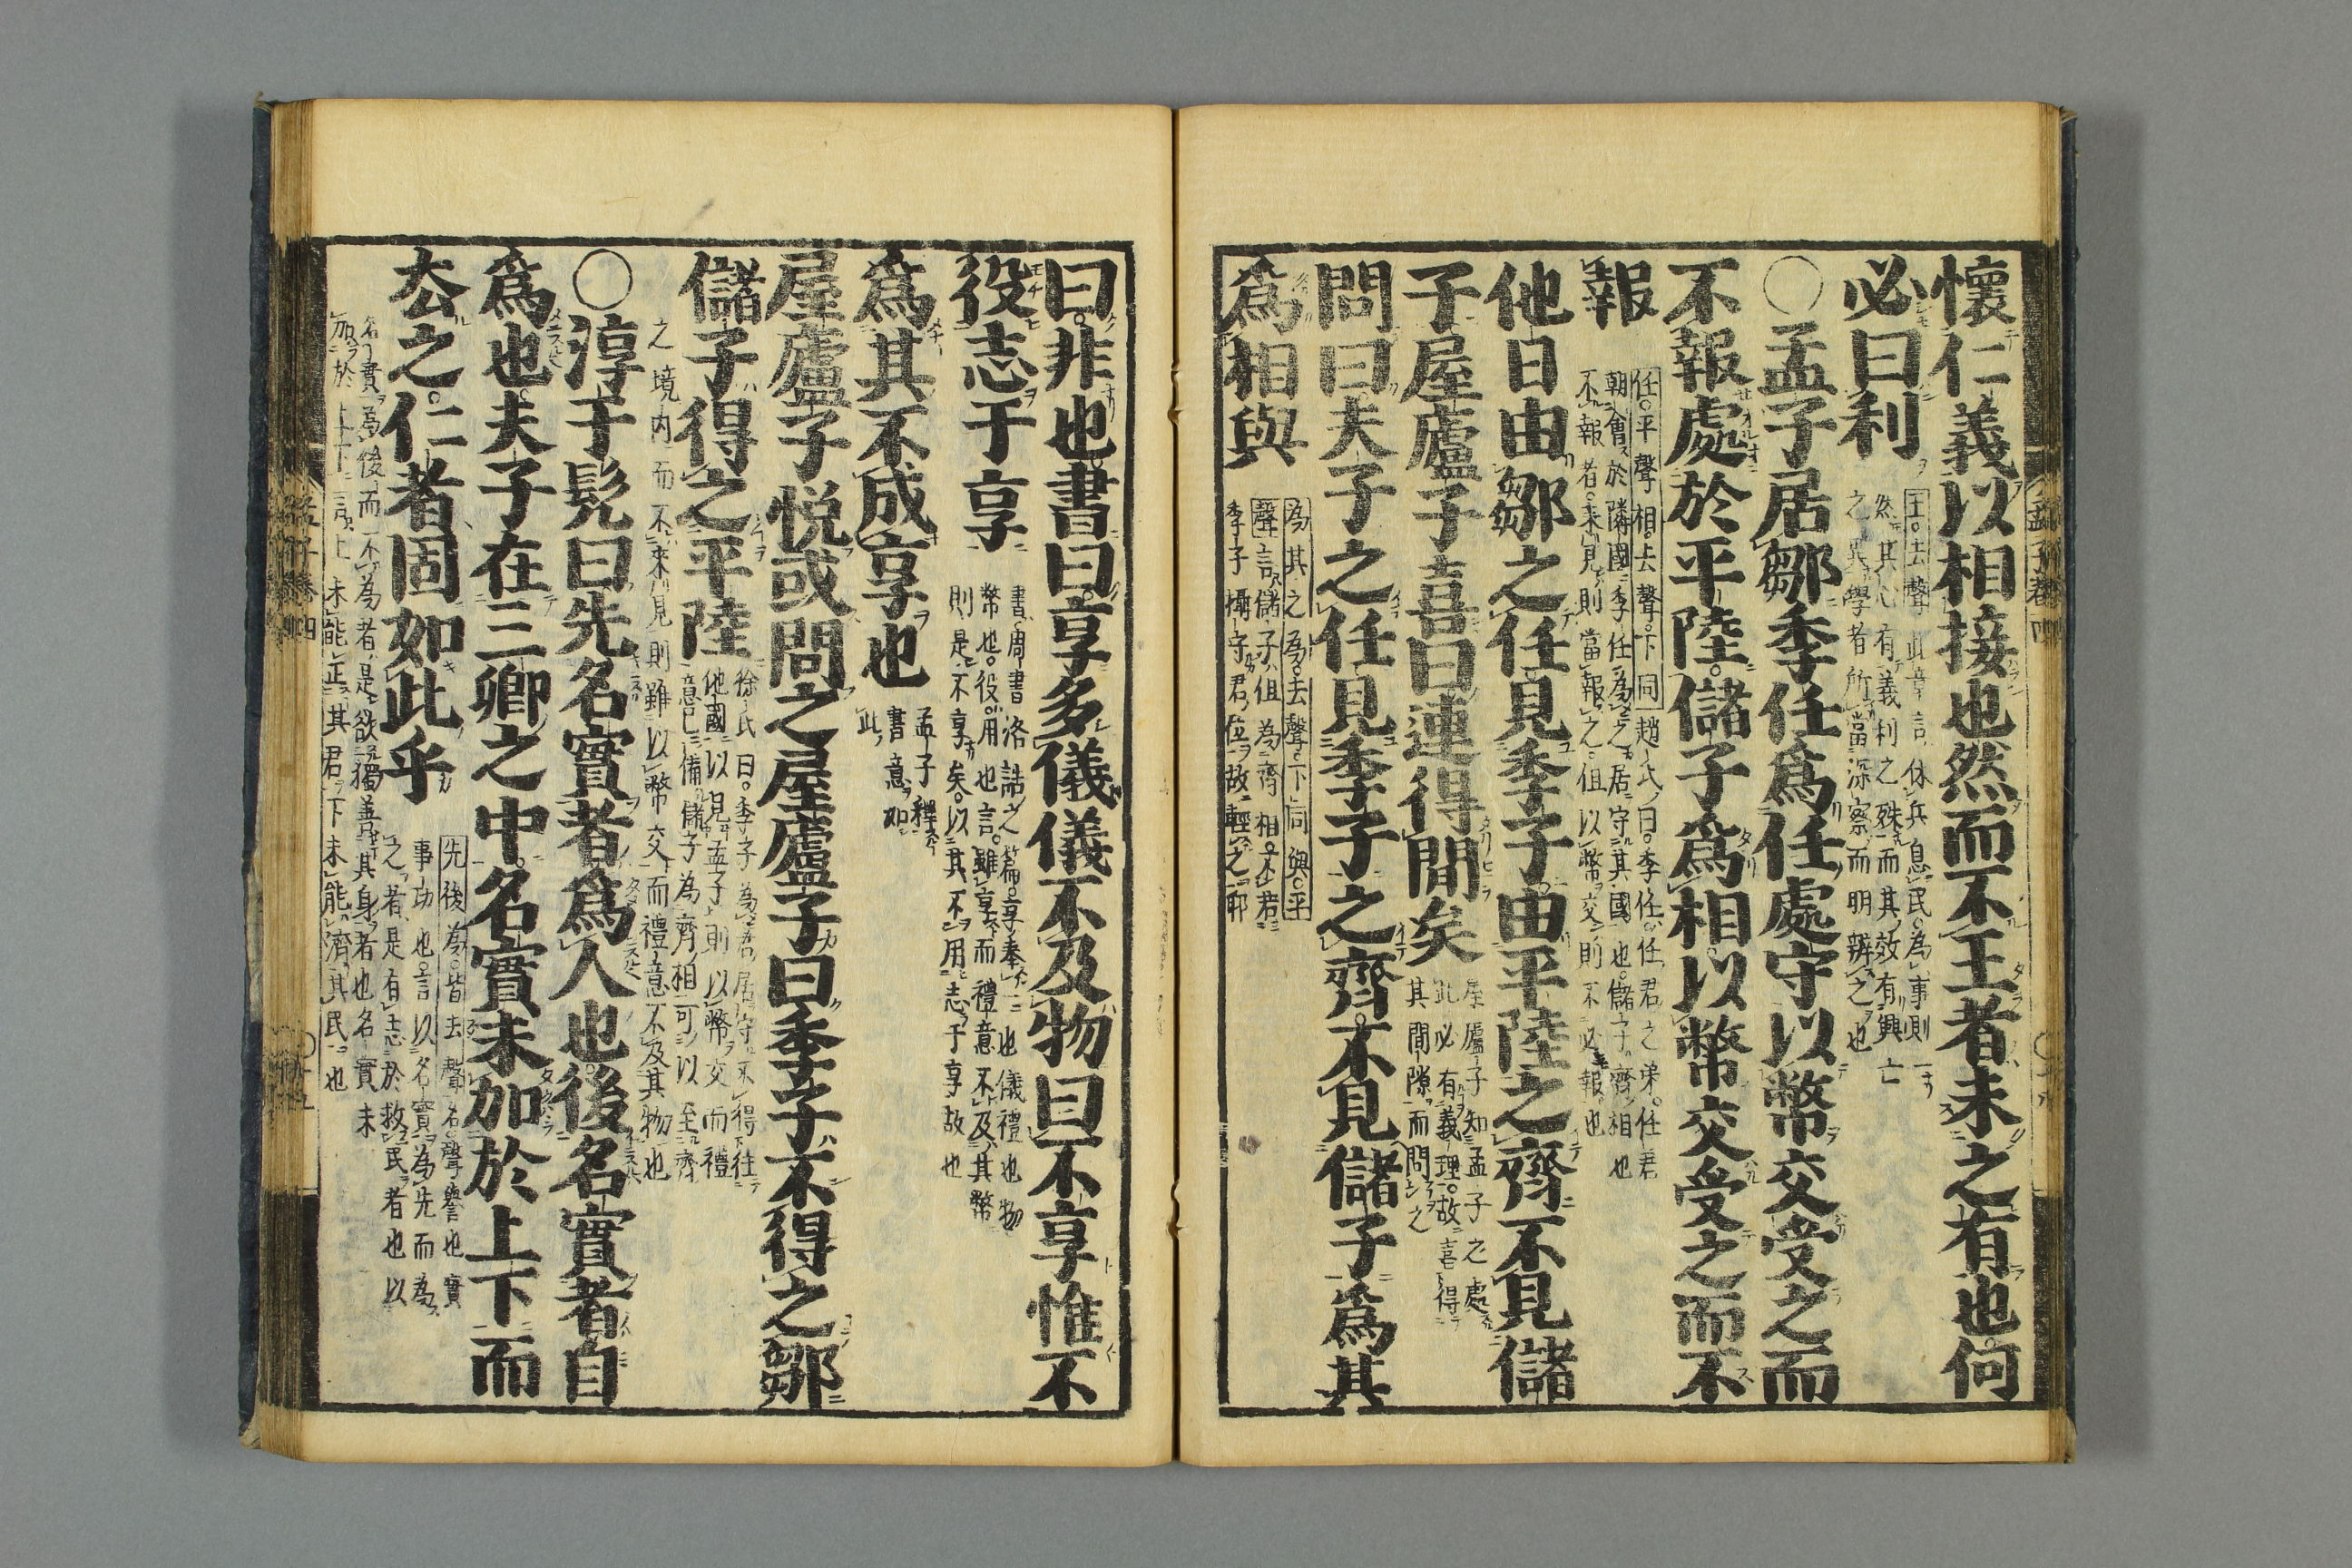 懷仁義以相接也然而不王者未之有也何
必曰利
王去聲此章言休兵息民為事則一
然其心有義利之殊而其效有興亡
之異學者所當深察而明辨之也
〇孟子居鄒季任爲任處守以幣交受之而
不報處於平陸儲子爲相以幣交受之而不
報
任平聲相去聲下同趙氏曰季任任君之弟任君
朝會於隣國季任為之居守其國也儲子齊相也
不報者來見則當報之但以幣交則不必報也
他日由鄒之任見季子由平陸之齊不見儲
子屋廬子喜曰連得閒矣
屋廬子知孟子之處
此必有義理故喜得
其閒隙而問之
問曰夫子之任見季子之齊不見儲子爲其
爲相與
為其之為去聲下同與平
聲言儲子但為齊相不若
季子攝守君位故輕之耶
曰非也書曰享多儀儀不及物曰不享惟不
役志于享
書周書洛誥之篇享奉上也儀禮也物
幣也役用也言雖享而禮意不及其幣
則是不享矣以其不用志于享故也
爲其不成享也
孟子釋
書意如
此
屋廬子悅或問之屋廬子曰季子不得之鄒
儲子得之平陸
徐氏曰季子為君居守不得往
他國以見孟子則以幣交而禮
意已備儲子為齊相可以至齊
之境內而不來見則雖以幣交而禮意不及其物也
〇淳于髡曰先名實者爲人也後名實者自
爲也夫子在三卿之中名實未加於上下而
厺之仁者固如此乎
先後為皆去聲名聲譽也實
事功也言以名實為先而為
之者是有志於救民者也以
名實為後而不為者是欲獨善其身者也名實未
加於上下言上未能正其君下未能濟其民也